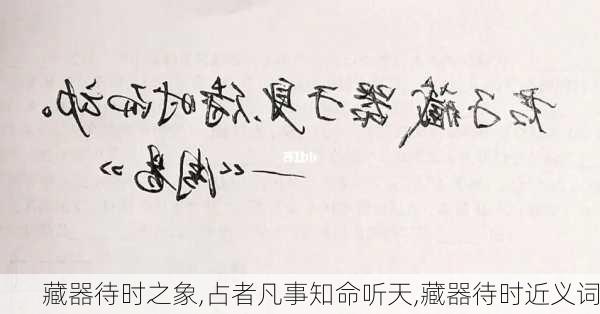 君子藏器于身,待时而动。
——《周易》
藏器待时之象,占者凡事知命听天,藏器待时近义词